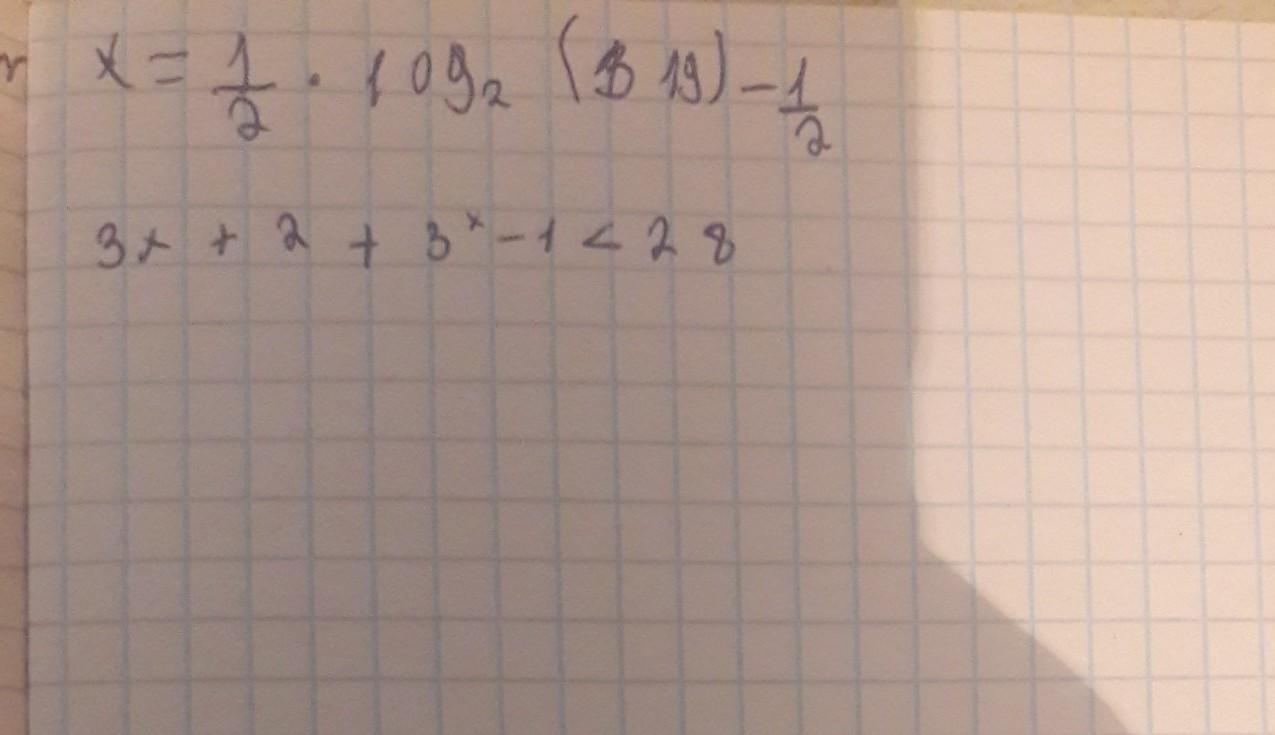 x = 1/2 · log₂ (819) - 1/2
3x + 2 + 3ˣ - 1 < 28